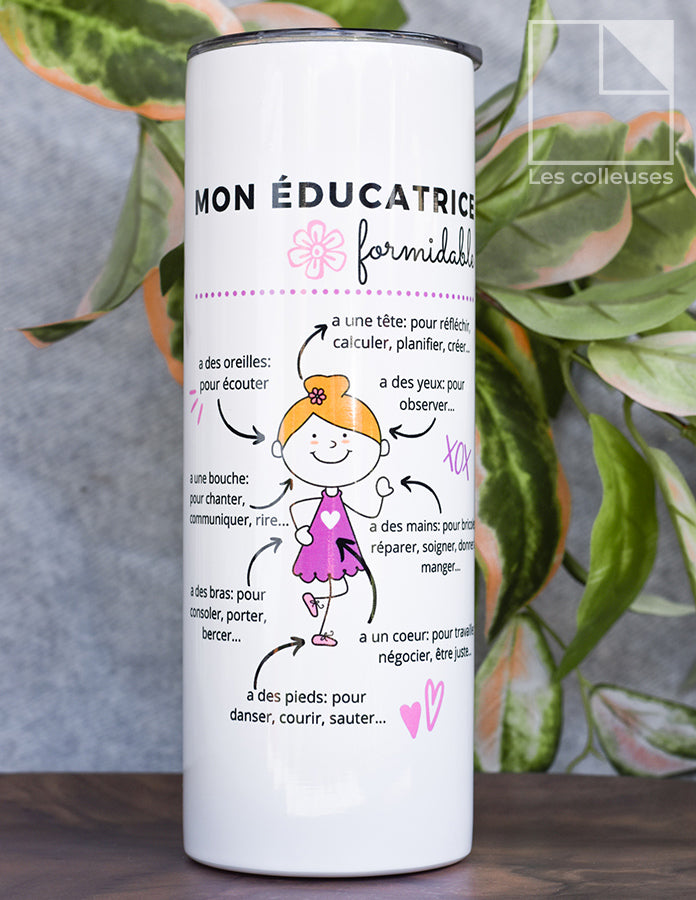 Les colleuses
MON ÉDUCATRICE
formidable
a une tête: pour réfléchir,
calculer, planifier, créer...
a des oreilles:
pour écouter
a des yeux: pour
observer...
XOX
a une bouche:
pour chanter,
communiquer, rire...
a des mains: pour
réparer, soigner,
manger...
a des bras: pour
consoler, porter,
bercer...
a un coeur: pour
négocier, être juste...
a des pieds: pour
danser, courir, sauter...